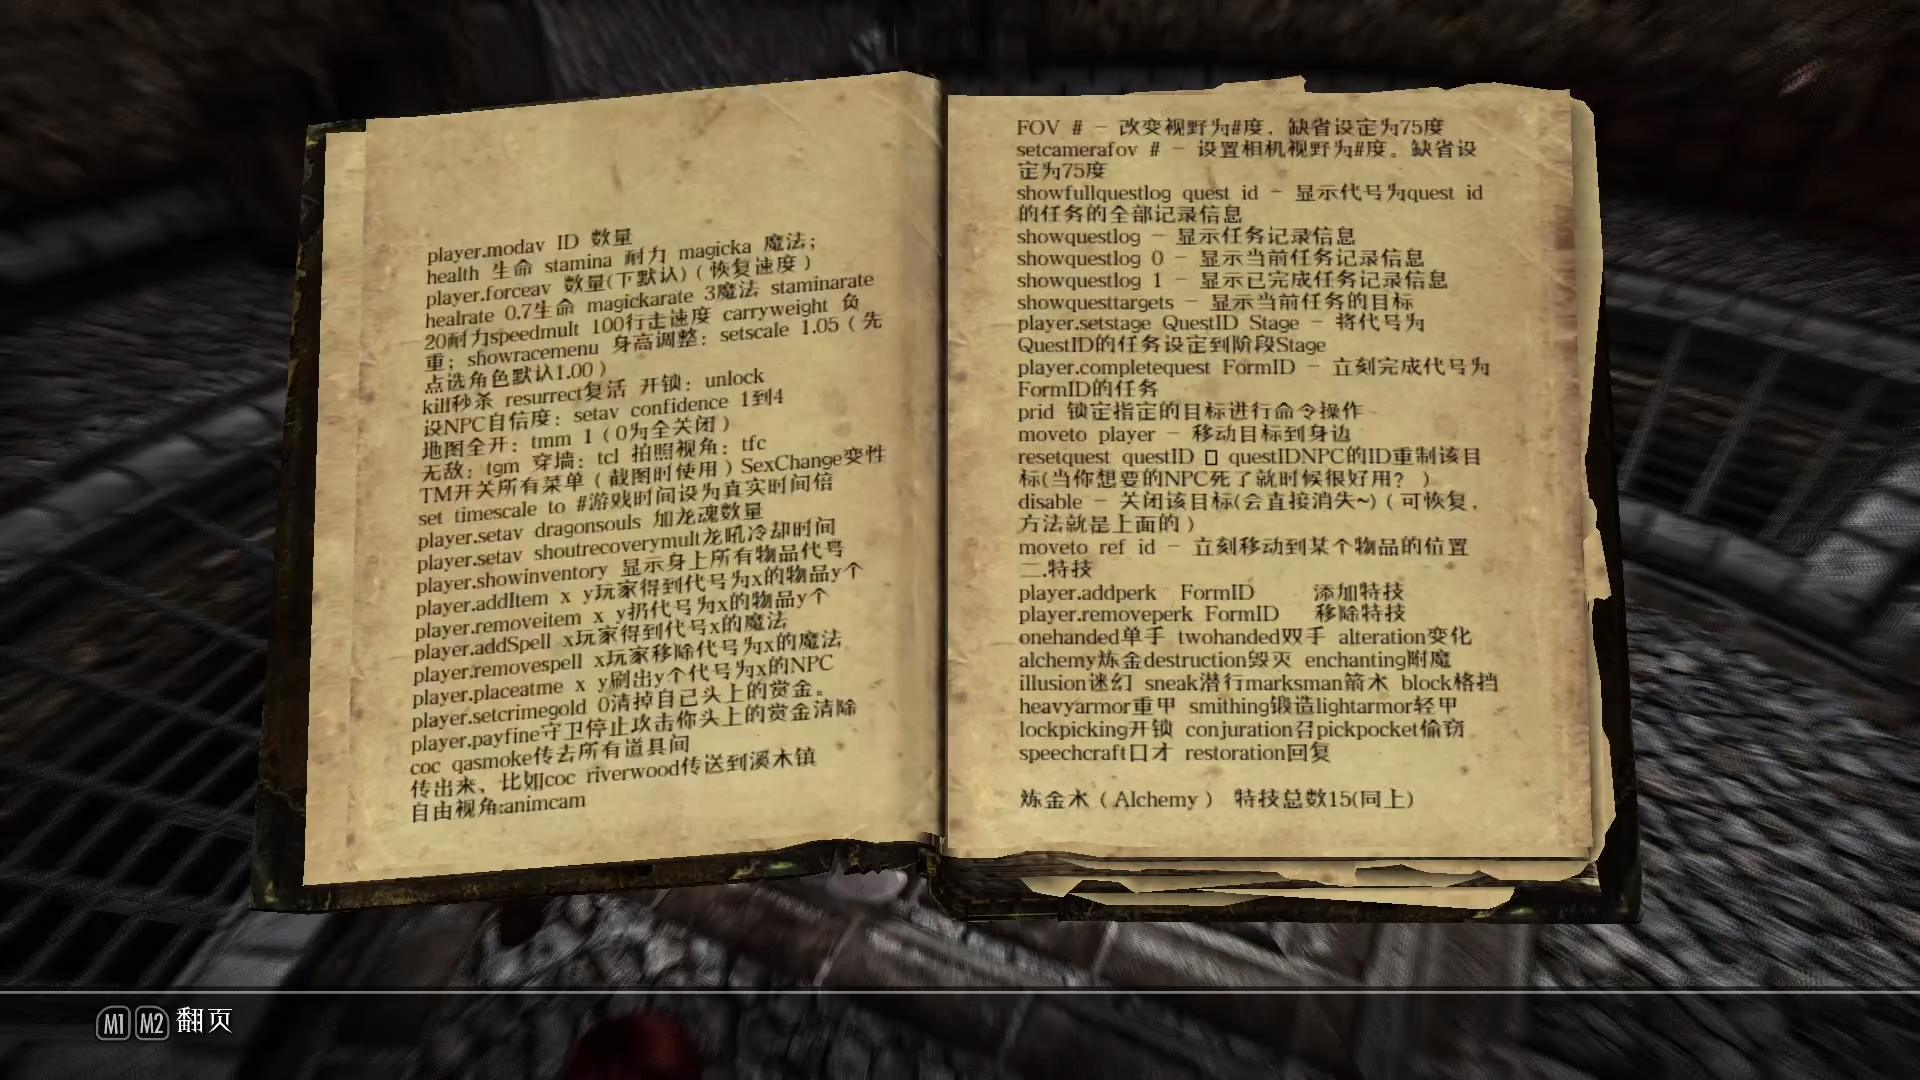 player.modav ID 数量
health 生命 stamina 耐力 magicka 魔法；
player.forceav 数量(下默认)（恢复速度）
healrate 0.7生命 magickarate 3魔法 staminarate
20耐力speedmult 100行走速度 carryweight 负
重；showracemenu 身高调整：setscale 1.05（先
点选角色默认1.00）
kill秒杀 resurrect复活 开锁：unlock
设NPC自信度：setav confidence 1到4
地图全开：tmm 1（0为全关闭）
无敌：tgm 穿墙：tcl 拍照视角：tfc
TM开关所有菜单（截图时使用）SexChange变性
set timescale to #游戏时间设为真实时间倍
player.setav dragonsouls 加龙魂数量
player.setav shoutrecoverymult龙吼冷却时间
player.showinventory 显示身上所有物品代号
player.addItem x y玩家得到代号为x的物品y个
player.removeitem x y扔代号为x的物品y个
player.addSpell x玩家得到代号x的魔法
player.removespell x玩家移除代号为x的魔法
player.placeatme x y刷出y个代号为x的NPC
player.setcrimegold 0清掉自己头上的赏金。
player.payfine守卫停止攻击你头上的赏金清除
coc qasmoke传去所有道具间
传出来、比如coc riverwood传送到溪木镇
自由视角:animcam
FOV # - 改变视野为#度，缺省设定为75度
setcamerafov # - 设置相机视野为#度。缺省设
定为75度
showfullquestlog quest id - 显示代号为quest id
的任务的全部记录信息
showquestlog - 显示任务记录信息
showquestlog 0 - 显示当前任务记录信息
showquestlog 1 - 显示已完成任务记录信息
showquesttargets - 显示当前任务的目标
player.setstage QuestID Stage - 将代号为
QuestID的任务设定到阶段Stage
player.completequest FormID - 立刻完成代号为
FormID的任务
prid 锁定指定的目标进行命令操作
moveto player - 移动目标到身边
resetquest questID □ questIDNPC的ID重制该目
标(当你想要的NPC死了就时候很好用？ )
disable - 关闭该目标(会直接消失~)（可恢复，
方法就是上面的）
moveto ref id - 立刻移动到某个物品的位置
二.特技
player.addperk FormID 添加特技
player.removeperk FormID 移除特技
onehanded单手 twohanded双手 alteration变化
alchemy炼金destruction毁灭 enchanting附魔
illusion迷幻 sneak潜行marksman箭术 block格挡
heavyarmor重甲 smithing锻造lightarmor轻甲
lockpicking开锁 conjuration召pickpocket偷窃
speechcraft口才 restoration回复
炼金术（Alchemy） 特技总数15(同上)
M1 M2 翻页